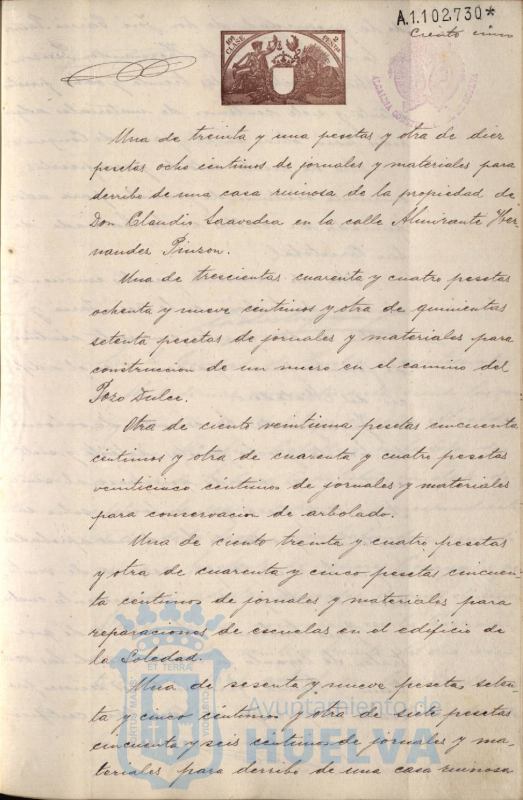 A.1.102.730*
Ciento cinco
10ª CLASE
2 PESETAS
Una de treinta y una pesetas y otra de diez
pesetas ocho centimos de jornales y materiales para
derribo de una casa ruinosa de la propiedad de
Don Claudio Saavedra en la calle Almirante Her-
nandez Pinzon.
Una de trescientas cuarenta y cuatro pesetas
ochenta y nueve céntimos y otra de quinientas
setenta pesetas de jornales y materiales para
construccion de un muro en el camino del
Pozo Dulce.
Otra de ciento veintiuna pesetas cincuenta
céntimos y otra de cuarenta y cuatro pesetas
veinticinco céntimos de jornales y materiales
para conservacion de arbolado.
Una de ciento treinta y cuatro pesetas
y otra de cuarenta y cinco pesetas cincuen-
ta céntimos de jornales y materiales para
reparaciones de escuelas en el edificio de
la Soledad.
Una de sesenta y nueve pesetas seten-
ta y cinco céntimos y otra de siete pesetas
cincuenta y seis centimos de jornales y ma-
teriales para derribo de una casa ruinosa
PORTUS MARIS
ET TERRÆ
CUSTODIA
Ayuntamiento de
HUELVA